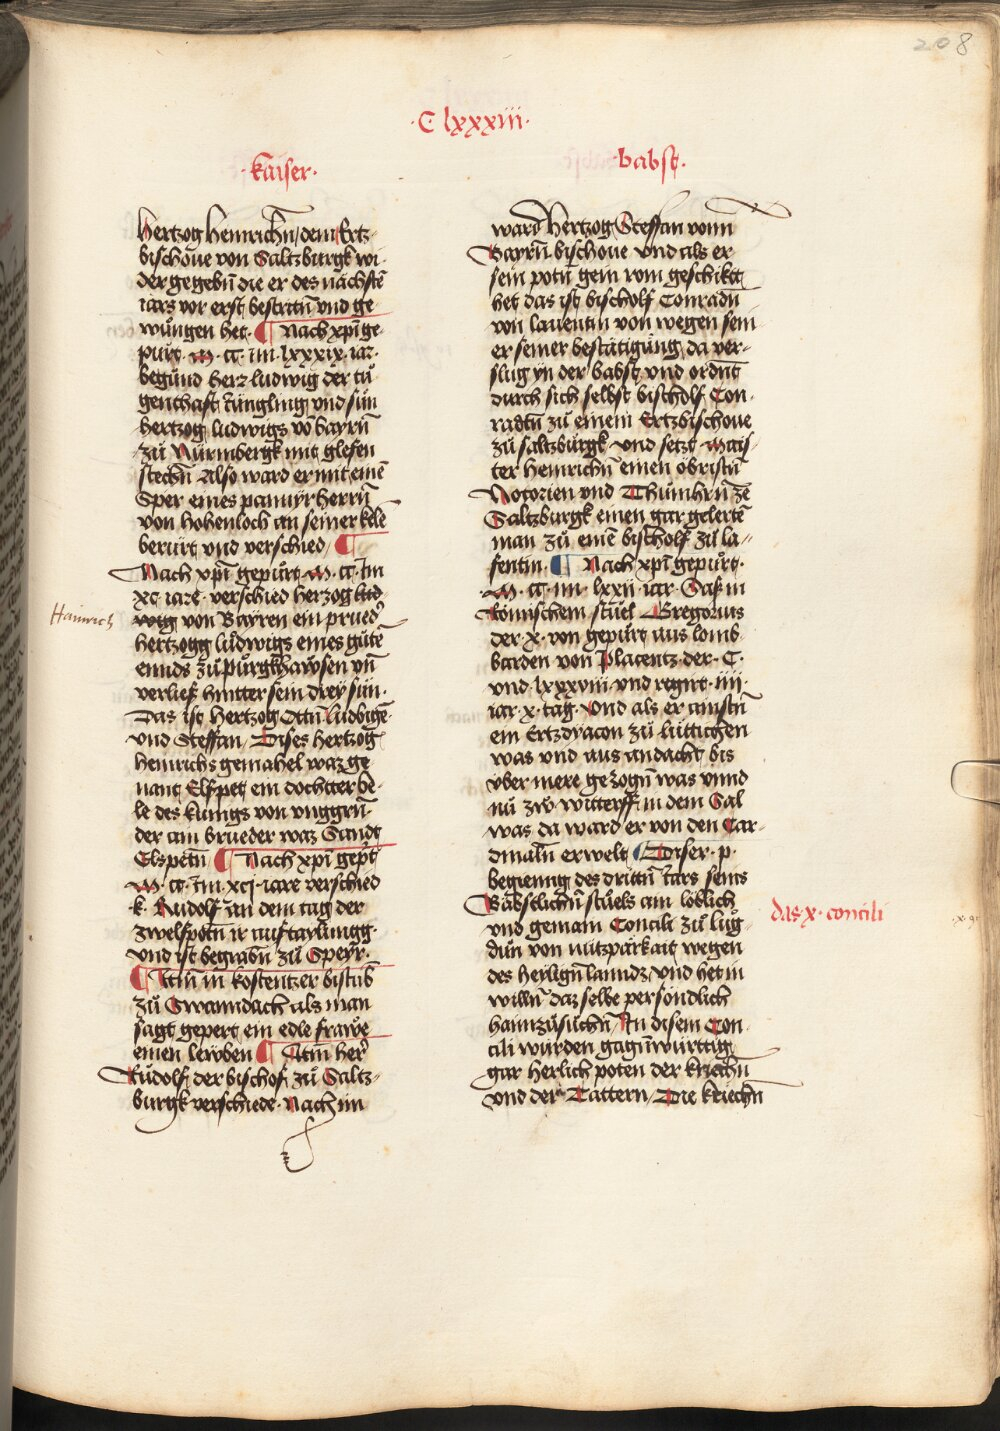 208
·C lxxxiii·
·kaiser·
hertzog heinrichn̄ / dem Ertz-
bischoue von Saltzburgk wi-
der gegebn̄ die er des nächstē
iars vor erst bestritn̄ vnd ge
wūngen het· ¶ Nach xpī ge-
purt· M· cc· im lxxxix· iar·
begūnd herz ludwig der tu
genthaft iūngling vnd sun
hertzog ludwigs vō bayrn̄
zů Nürmbergk mit glesen
stechn̄ Also ward er mit einē
Sper eines panirherrn̄
von hohenloch an seiner kele
berürt vnd verschied / ¶
Nach xpī gepurt M· cc· Im
xc iare· verschied herzog lud
wig von Bayren ein prued
Hainrich
hertzogg ludwigs eines gutē
ennds zů purgkhawsen vn̄
verlies hinter sein drey sün·
Das ist hertzog Ottn̄ ludbigē
vnd Steffan / Dises hertzog
heinrichs gemahel waz ge
nant Elspet ein dochter be-
le des kūnigs von vnggrn̄·
der ain brueder waz Sandt
Elspetn̄ ¶ Nach xpī gepůt
M· cc· Im· xcj· iare verschied
·k· Rudolf an dem tag der
zwelfpotn̄ ir auftaylungg·
vnd ist begrabn̄ zů Speyr·
¶ Itm̄ in kostentzer bistub
zů Swanndach als man
sagt gepert ein edle frawe
einen lewben ¶ Itm̄ her
Růdolf der bischof zů Saltz-
burgk verschiede· Nach im
·babst·
ward hertzog Steffan vonn
Bayrn̄ bischoue vnd als er
sein potn̄ gein rom geschikt
het das ist bischolf Conradn̄
von lauentin von wegen sein
er seiner bestätigūng da ver-
slug yn der babst vnd ordnt
durch sich selbst bischolf Con-
radn̄ zů einem Ertzbischoue
zů saltzburgk· vnd setzt Mais-
ter heinrichn̄ einen öbristn̄
Notorien vnd Thůmhrn̄ ze
Saltzburgk einen gar gelertē
man zů einē bischolf zů la-
fentin· ¶ Nach xpī gepurt·
·M· cc· im· lxxii· iar· Saß in
Römischem stuel Gregorius
der ·x· von gepurt aus lomb-
barden von Placentz der· C·
vnd· lxxxviii· vnd regirt· iiii·
iar ·x· tag· vnd als er ainstn̄
ein Ertzdyacon zů lüttichen
was vnd aus andacht bis
vber mere gezogn̄ was vnnd
nū zw witterff· in dem Sal
was da ward er von den Car-
dinaln̄ erwelt ¶ Diser· p·
begienng des drittn̄ Iars seins
Bābstlichn̄ stuels ain löblich
das ·x· concili
vnd gemain Concili zů lug-
dūn von nützparkait wegen
des heylign̄ lanndz vnd het in
willn̄ daz selbe persöndlich
hainzůsuchn̄ In disem Con-
cili wurden gagn̄württig
gar herlich poten der kriechn̄
vnd der Tattern / Die kriechn̄